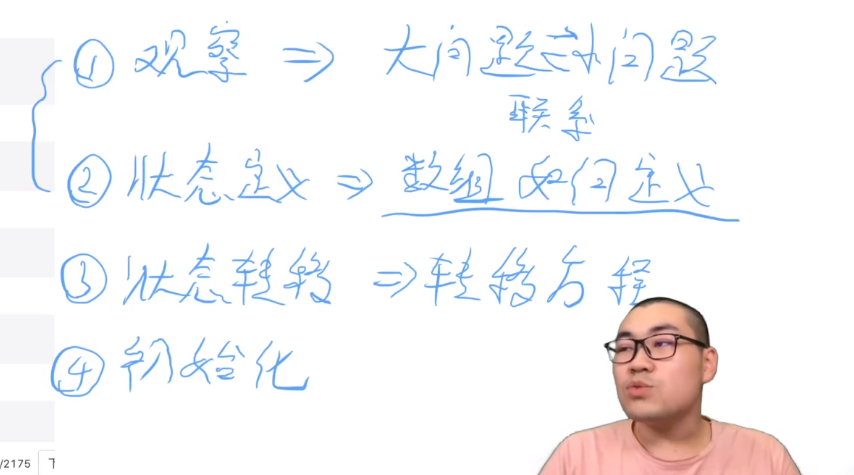 ① 观察 ⇒ 大问题与小问题
联系
② 状态定义 ⇒ 数组如何定义
③ 状态转移 ⇒ 转移方程
④ 初始化
/2175 下